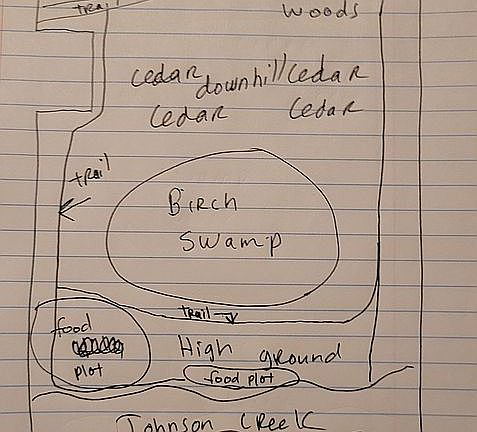 trail
woods
cedar downhill cedar
cedar cedar
trail
Birch
swamp
trail
food
plot
High ground
food plot
Johnson Creek